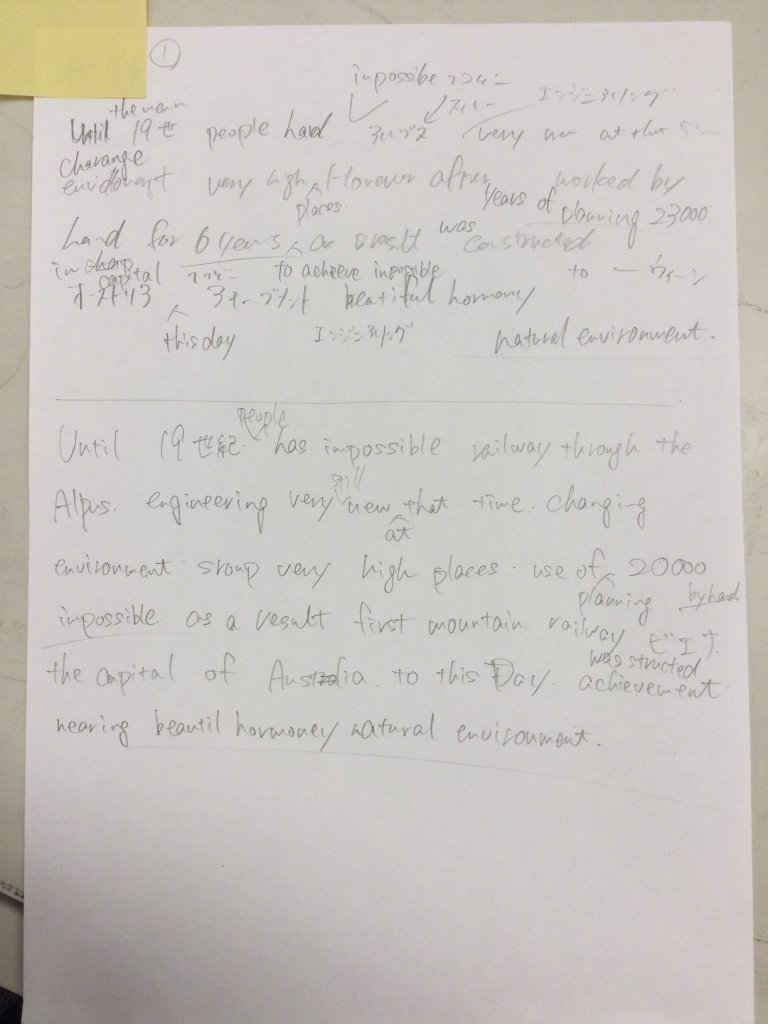 ①
inpossibe
the
Until 19世 people had アルプス very at that
エンジニアリング
charange
envidomept very high However after worked by
places. years of planning 23000
hard for 6 years as a result was constructed
in capital to acheeve inpossible to ウィーン
beatiful hormony
this day エンジニアリング natural environment.
people
Until 19世紀 has impossible railway through the
still
Alpus. engineering very new that time. changing
at
environment sroup very high places. use of 20000
planning by hard
inpossible as a result first mountain railway
was structed
the capital of Austria to this Day. achievement
nearing beautil hormoney natural environment.